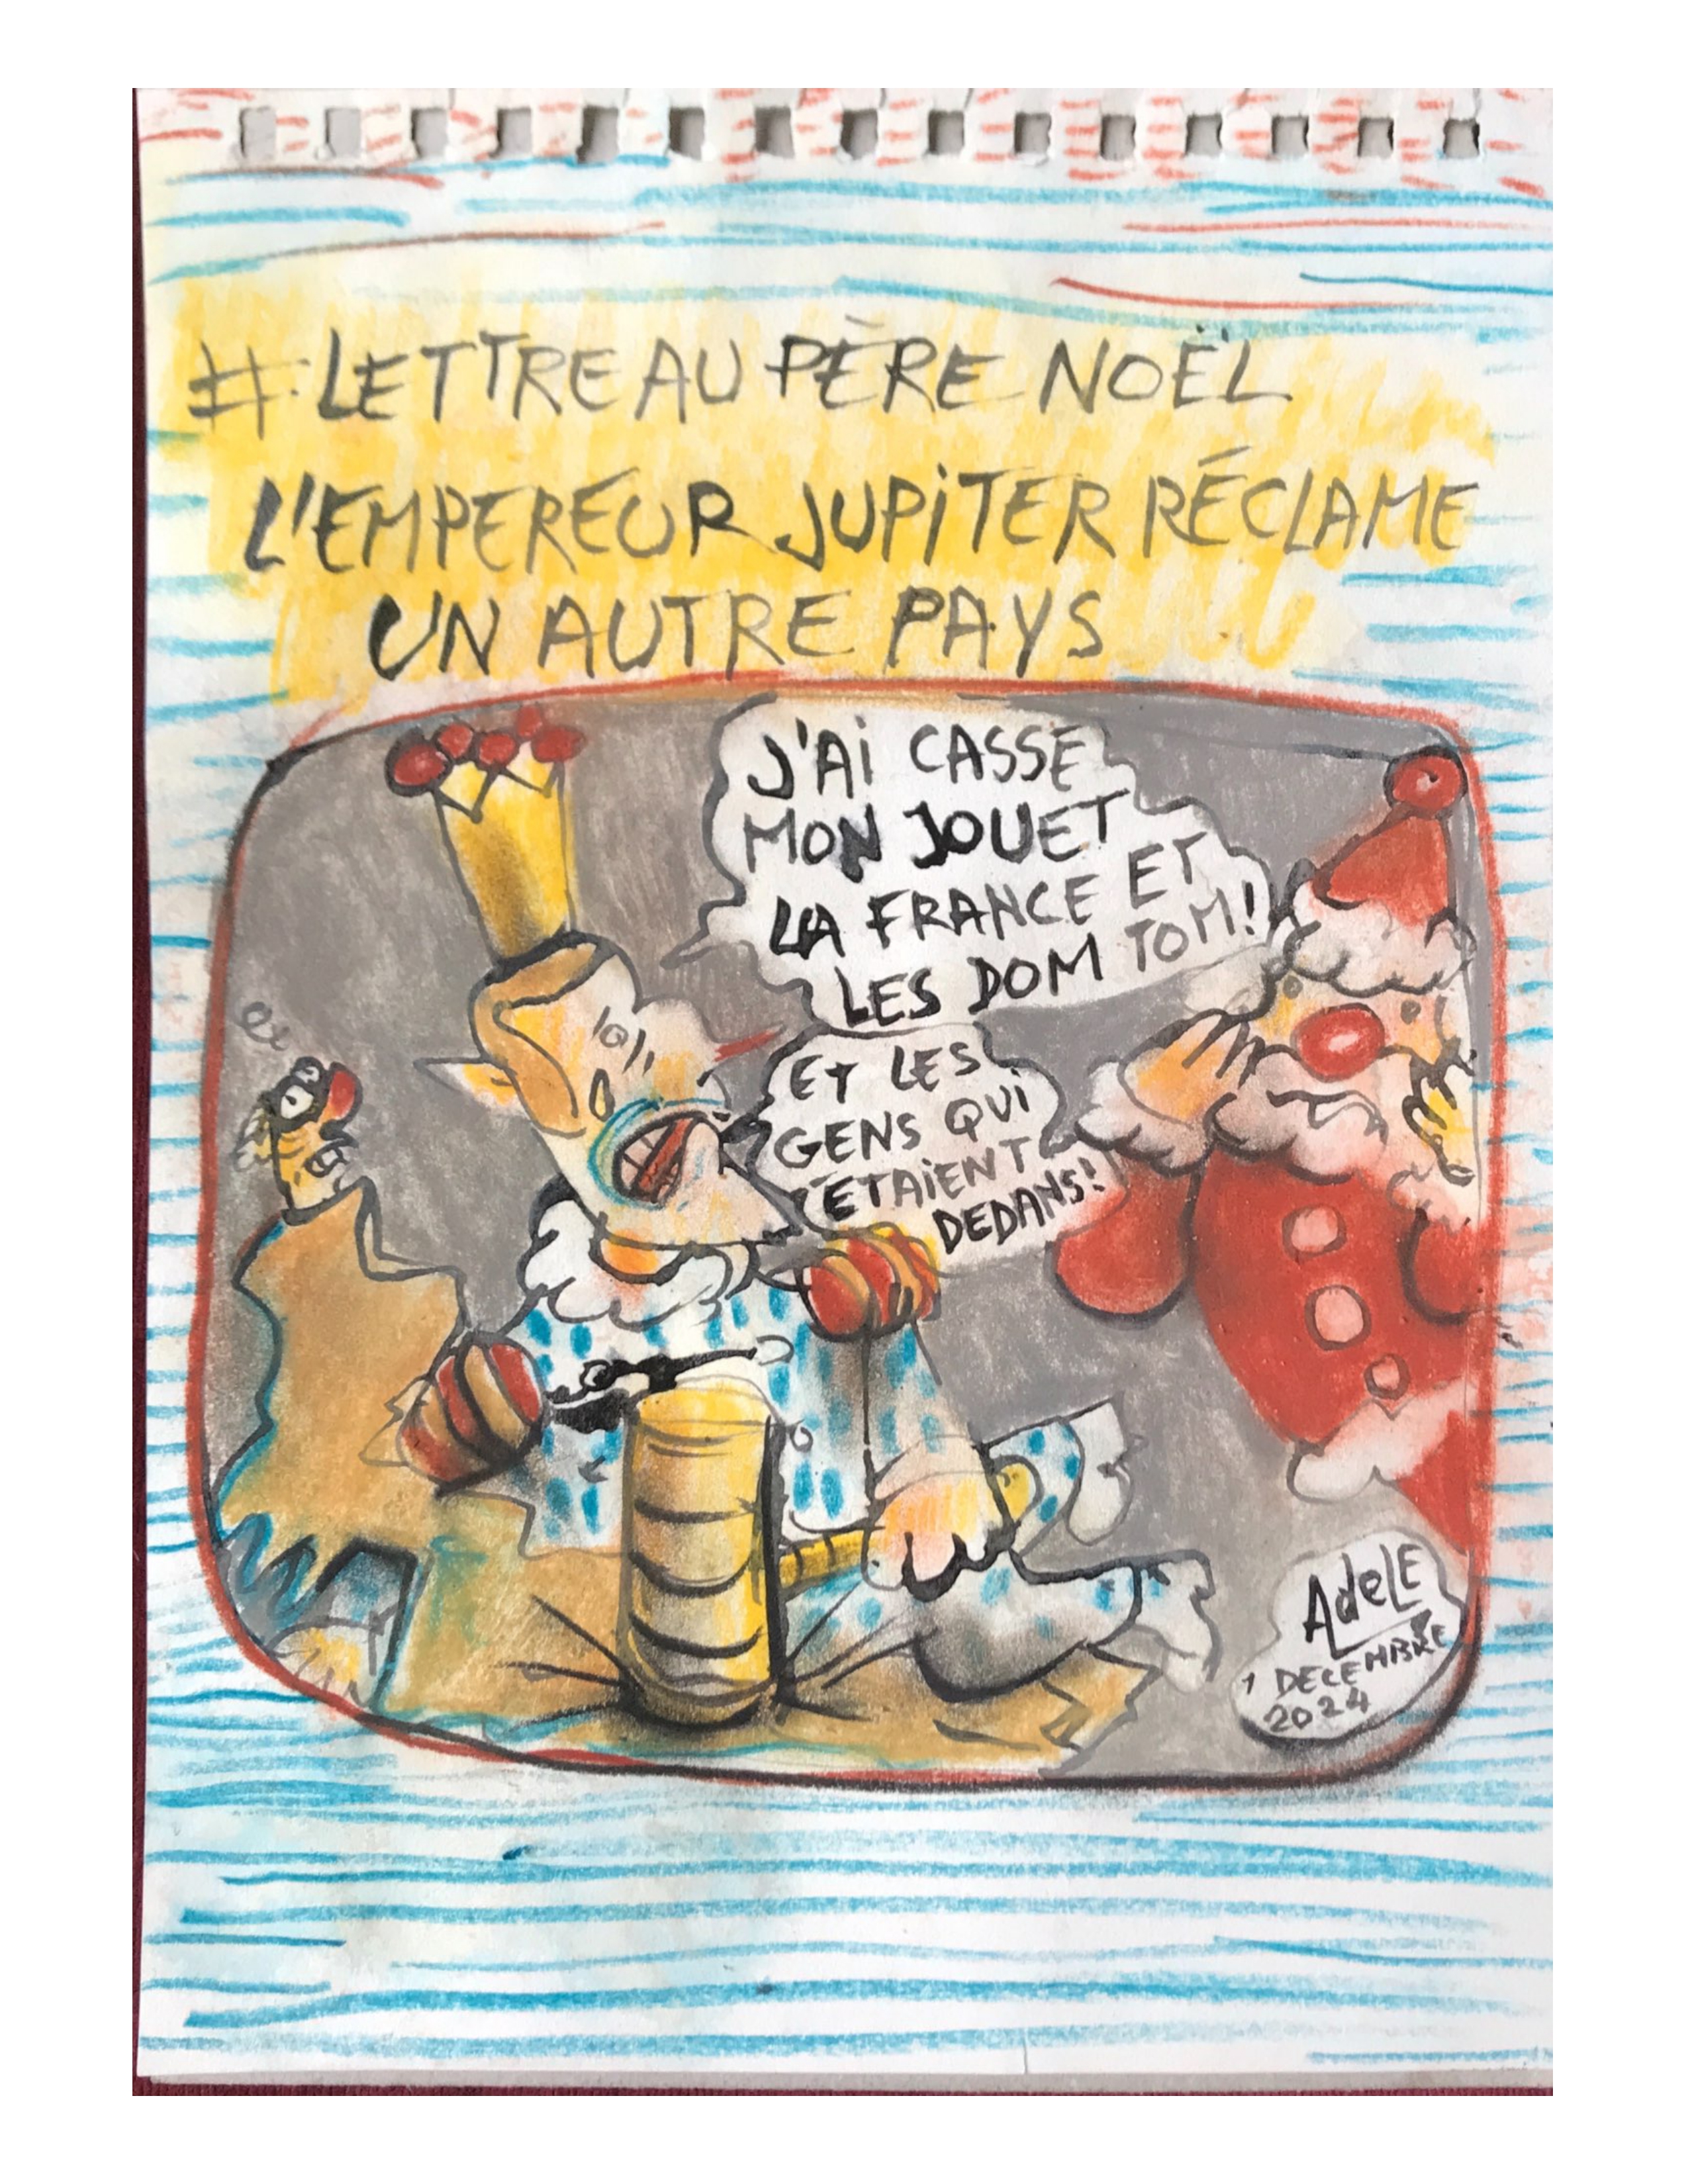 # LETTRE AU PÈRE NOËL
L'EMPEREUR JUPiTER RÉCLAME
UN AUTRE PAYS
J'Ai CASSE
MON JOUET
LA FRANCE ET
LES DOM TOM!
ET LES
GENS QUi
ETAiENT
DEDANS!
AdeLE
1 DECEMBRE
2024